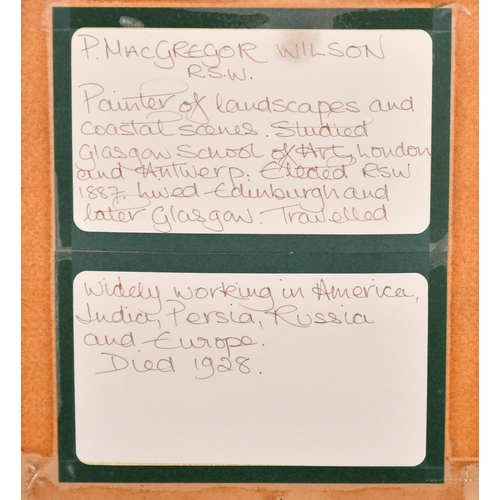 P. MACGREGOR WILSON
R.S.W.
Painter of landscapes and
coastal scenes. Studied
Glasgow School of Art, London
and Antwerp. Elected RSW
1887. Lived Edinburgh and
later Glasgow. Travelled
widely working in America,
India, Persia, Russia
and Europe.
Died 1928.